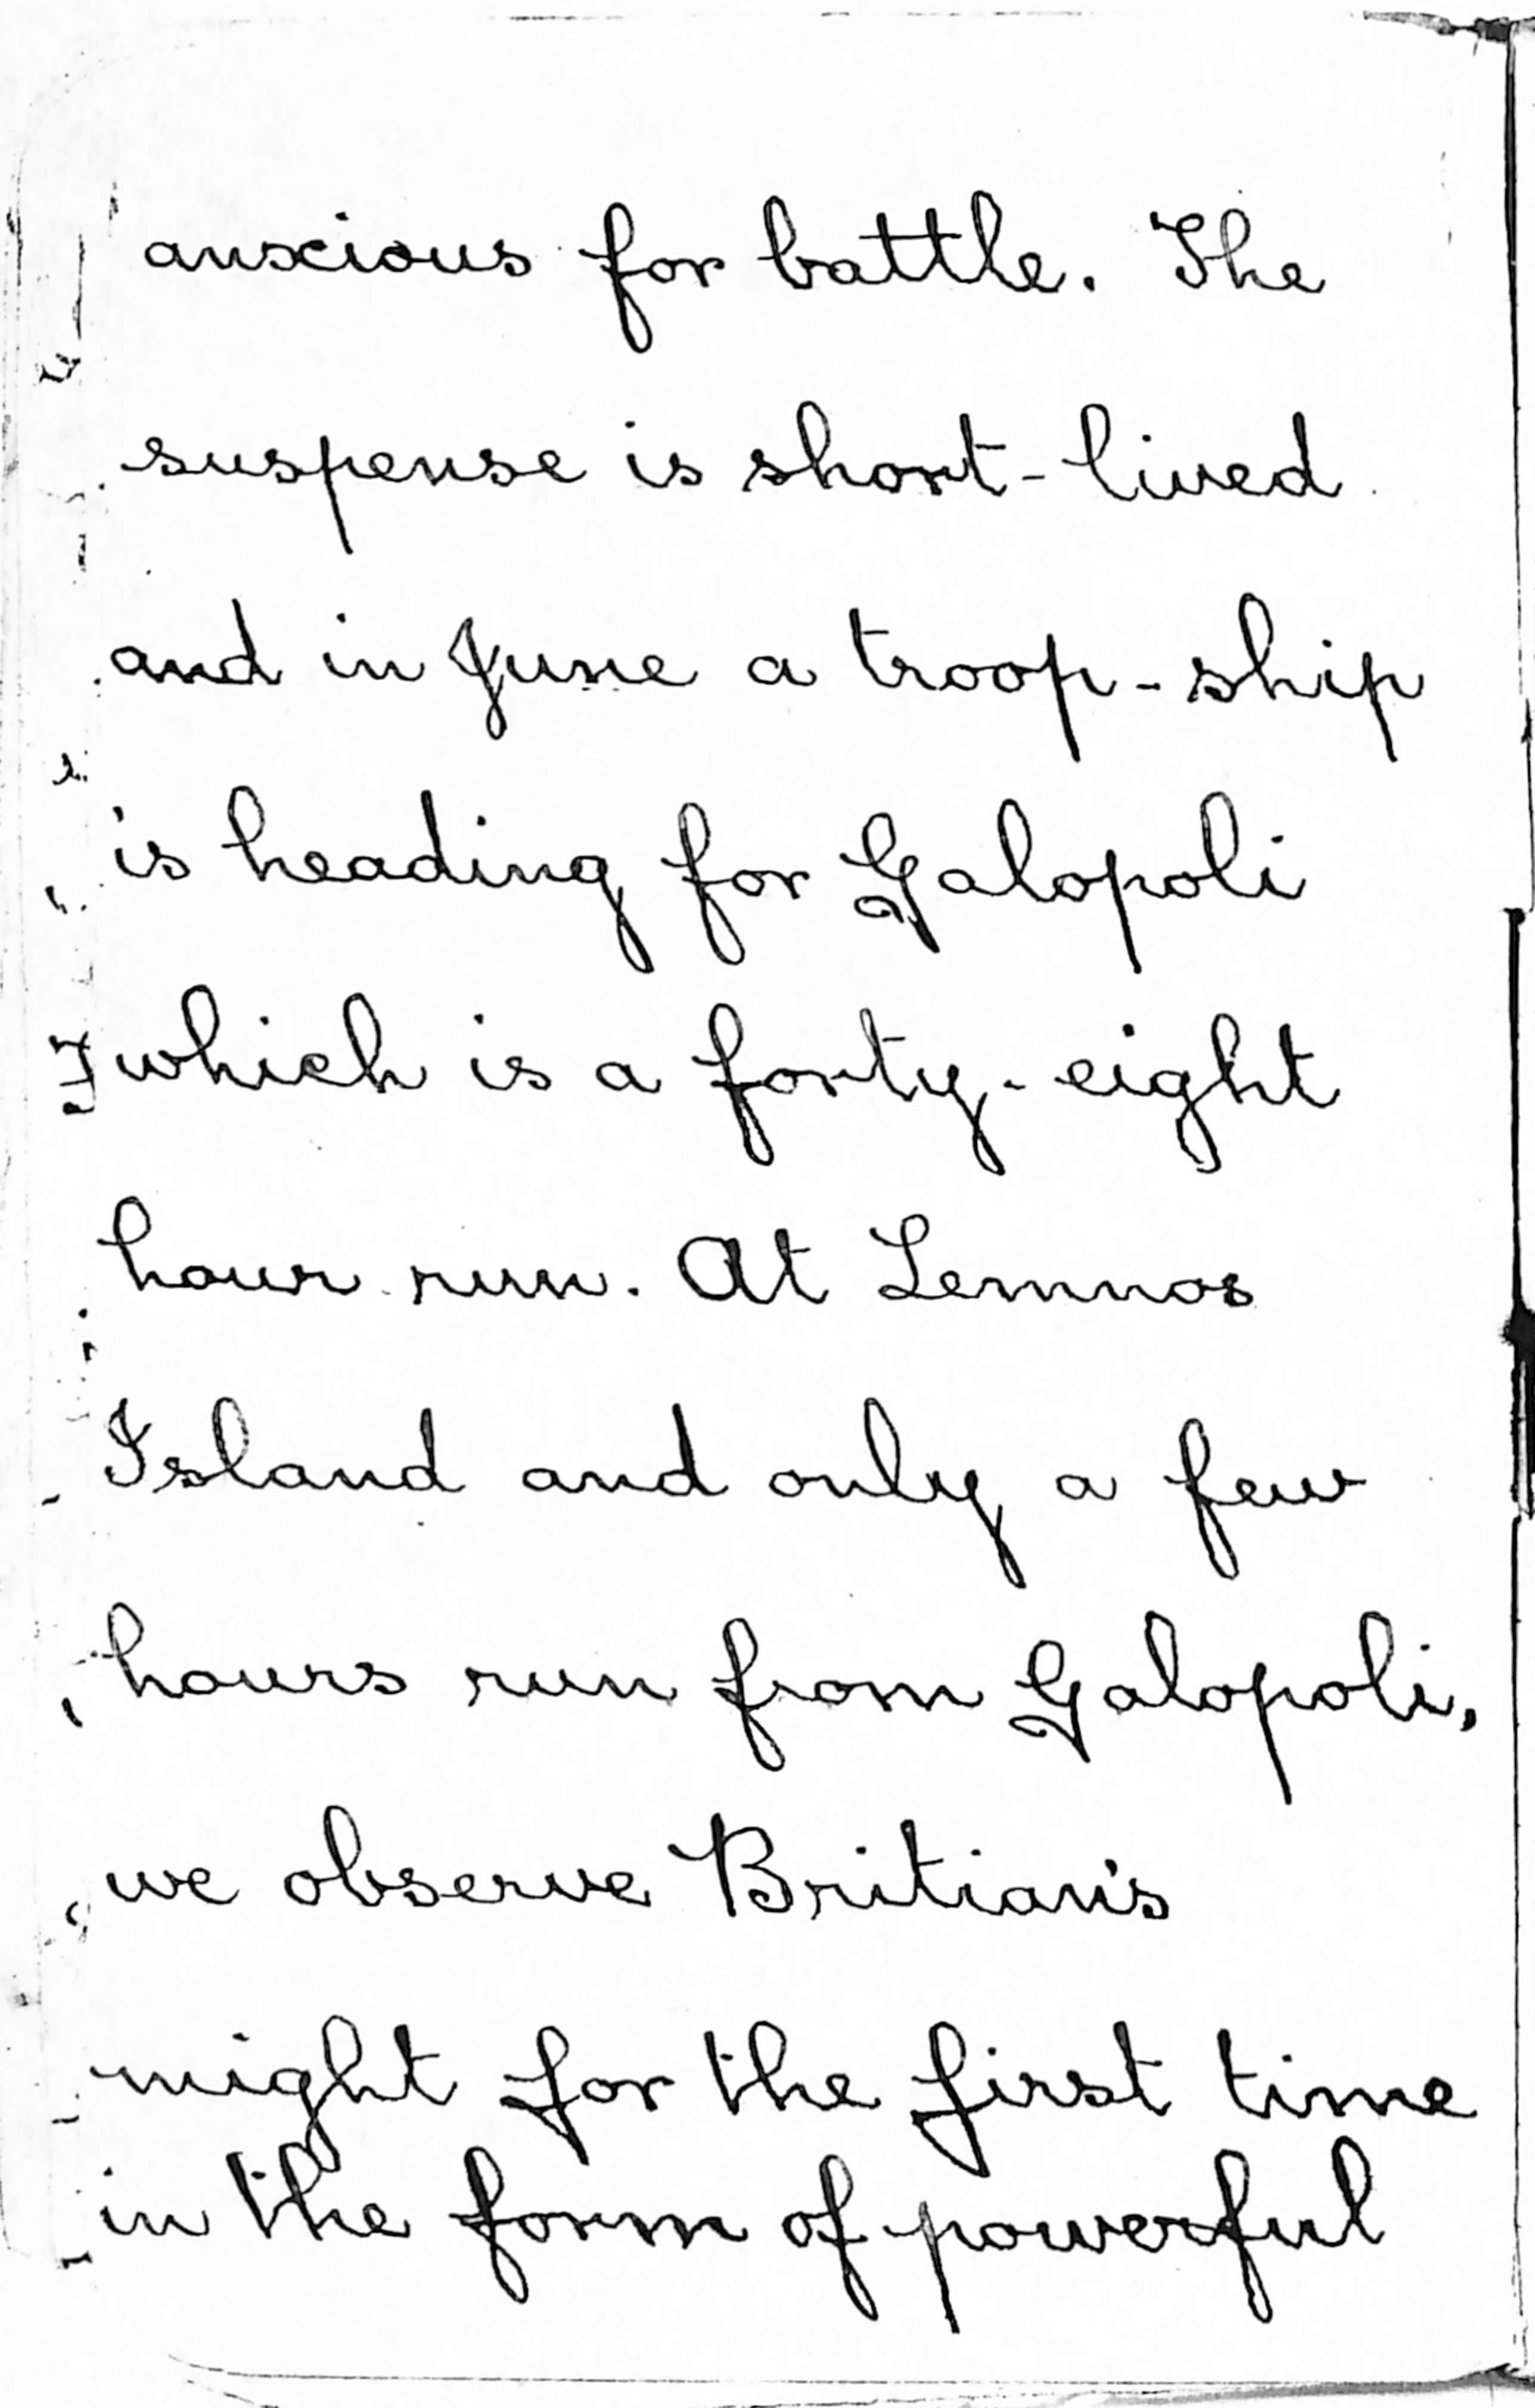 anxcious for battle. The
suspense is short-lived
and in June a troop-ship
is heading for Galopoli
which is a forty-eight
hour run. At Lemnos
Island and only a few
hours run from Galopoli,
we observe Britian's
might for the first time
in the form of powerful